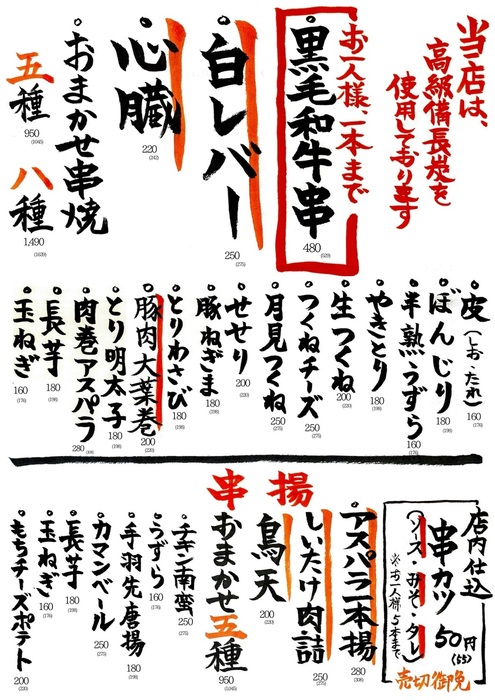 当店は、
高級備長炭を
使用しております
お一人様、一本まで
黒毛和牛串
480
(528)
白レバー
250
(275)
心臓
220
(242)
おまかせ串焼
五種
950
(1045)
八種
1,490
(1639)
皮(しお・たれ)
160
(176)
ぼんじり
180
(198)
半熟うずら
160
(176)
やきとり
180
(198)
生つくね
200
(220)
つくねチーズ
250
(275)
月見つくね
250
(275)
せせり
200
(220)
豚ねぎま
180
(198)
とりわさび
180
(198)
豚肉大葉巻
200
(220)
とり明太子
180
(198)
肉巻アスパラ
280
(308)
長芋
180
(198)
玉ねぎ
160
(176)
串揚
店内仕込
串カツ 50円
(55)
(ソース・みそ・タレ)
※お一人様5本まで
売切御免
アスパラ一本揚
280
(308)
しいたけ肉詰
250
(275)
鳥天
200
(220)
おまかせ五種
950
(1045)
チキン南蛮
250
(275)
うずら
160
(176)
手羽先唐揚
180
(198)
カマンベール
250
(275)
長芋
180
(198)
玉ねぎ
160
(176)
もちチーズポテト
200
(220)